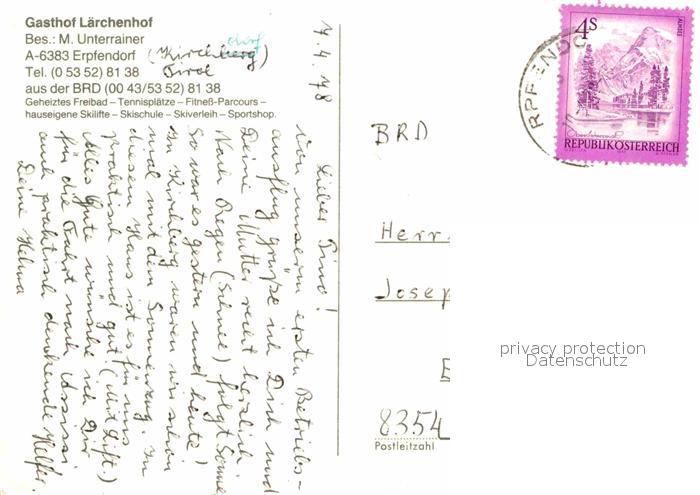 Gasthof Lärchenhof
Bes.: M. Unterrainer
A-6383 Erpfendorf (Kirchberg) dorf
Tel. (0 53 52) 81 38 Tirol
aus der BRD (00 43/53 52) 81 38
Geheiztes Freibad – Tennisplätze – Fitneß-Parcours –
hauseigene Skilifte – Skischule – Skiverleih – Sportshop.
7.4.78
Lieber Timo!
Von unserem ersten Betriebs-
ausflug grüße ich Dich und
Deine Mutter recht herzlich.
Nach Regen (Schnee) folgt Sonne
So war es gestern und heute!
In Kirchberg waren wir schon
mal mit dem Sonnenzug. In
diesem Haus ist es für uns
praktisch und gut! (Mit Lift.)
Alles Gute wünsche ich Dir
für die Fahrt nach Assisi
auch praktisch denkende Helfer.
Deine Helma
BRD
Herr
Josep
E
8354
Postleitzahl
4s
ALMSEE
REPUBLIK ÖSTERREICH
RPFENDO
privacy protection
Datenschutz